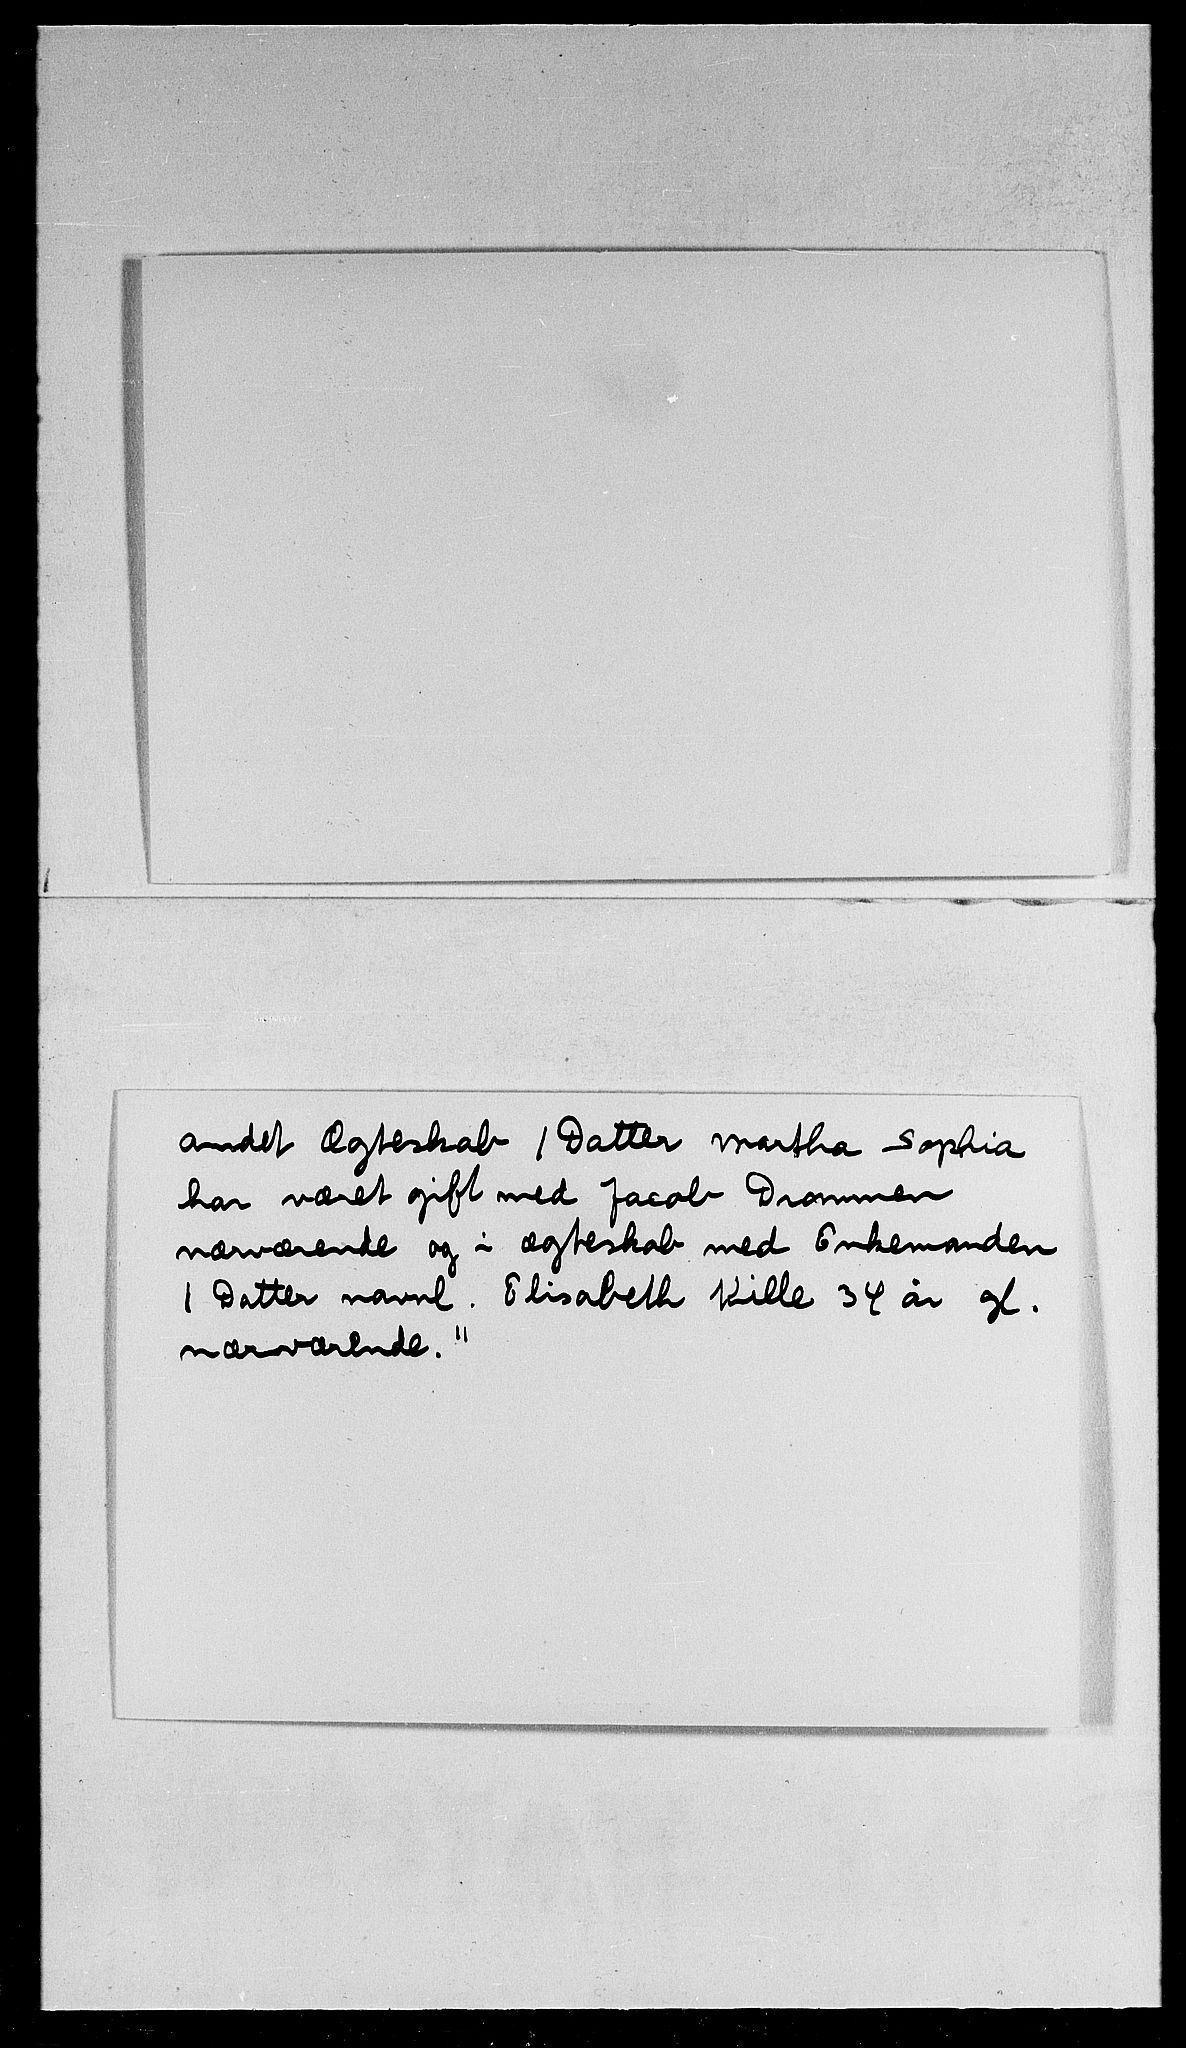 andet Ægteskab 1 Datter Martha Sophia
har været gift med Jacob Drammen
nærværende og i ægteskab med Enkemanden
1 Datter navnl. Elisabeth Kille 34 år gl.
nærværende."